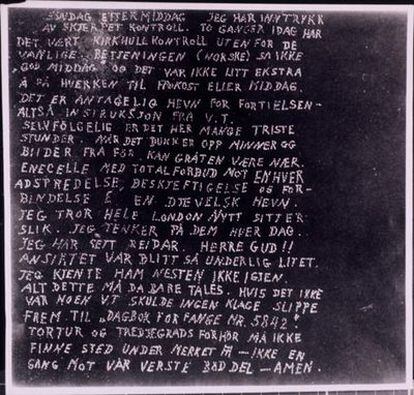 SØNDAG ETTERMIDDAG JEG HAR INNTRYKK
AV SKJERPET KONTROLL. TO GANGER IDAG HAR
DET VÆRT KIKKHULLKONTROLL UTENFOR DE
VANLIGE BETJENINGEN (NORSKE) SA IKKE
GOD MIDDAG OG DET VAR IKKE LITT EKSTRA
Å FÅ HVERKEN TIL FROKOST ELLER MIDDAG.
DET ER ANTAGELIG HEVN FOR FORTIELSEN-
ALTSÅ INSTRUKSJON FRA V.T.
SELVFØLGELIG ER DET HER MANGE TRISTE
STUNDER. NÅR DET DUKKER OPP MINNER OG
BILDER FRA FØR, KAN GRÅTEN VÆRE NÆR.
ENECELLE MED TOTALFORBUD MOT ENHVER
ADSPREDELSE, BESKJEFTIGELSE OG FOR-
BINDELSE E EN DJEVELSK HEVN.
JEG TROR HELE LONDON NYTT SITTER
SLIK. JEG TENKER PÅ DEM HVER DAG.
JEG HAR SETT REIDAR. HERRE GUD!!
ANSIKTET VAR BLITT SÅ UNDERLIG LITET.
JEG KJENTE HAM NESTEN IKKE IGJEN.
ALT DETTE MÅ DA BARE TÅLES. HVIS DET IKKE
VAR NOEN V.T. SKULDE INGEN KLAGE SLIPPE
FREM TIL „DAGBOK FOR FANGE NR. 5842"
TORTUR OG TREDJEGRADS FORHØR MÅ IKKE
FINNE STED UNDER MERKET – IKKE EN
GANG MOT VÅR VERSTE BØDDEL – AMEN.